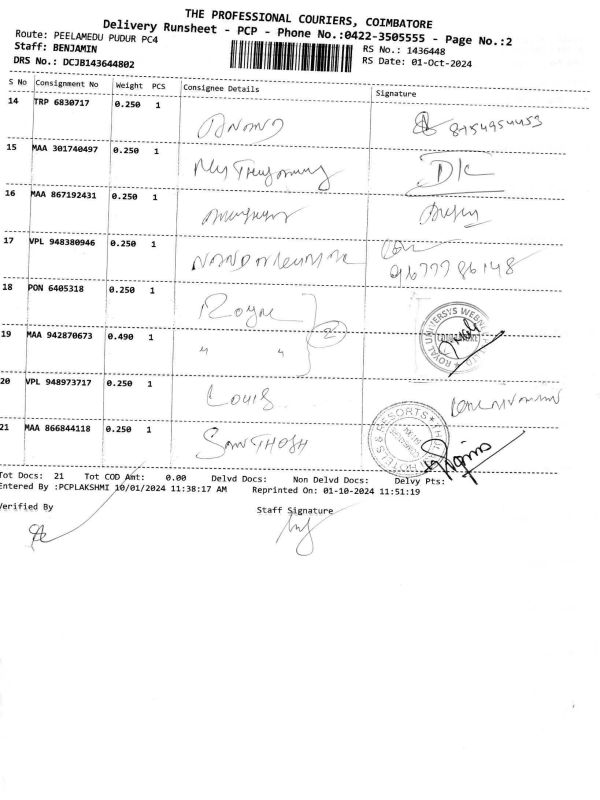 THE PROFESSIONAL COURIERS, COIMBATORE
Delivery Runsheet - PCP - Phone No.:0422-3505555 - Page No.:2
Route: PEELAMEDU PUDUR PC4
RS No.: 1436448
Staff: BENJAMIN
RS Date: 01-Oct-2024
DRS No.: DCJB143644802
S No Consignment No Weight PCS Consignee Details Signature
14 TRP 6830717 0.250 1 ANAND 8754954453
15 MAA 301740497 0.250 1 DK
16 MAA 867192431 0.250 1
17 VPL 948380946 0.250 1 9677786148
18 PON 6405318 0.250 1 Royal
2
19 MAA 942870673 0.490 1 " "
ROYAL UNIVERSYS WEBNET
20 VPL 948973717 0.250 1 Louis
21 MAA 866844118 0.250 1 SANTHOSH
HOTELS & RESORTS
Tot Docs: 21 Tot COD Amt: 0.00 Delvd Docs: Non Delvd Docs: Delvy Pts:
Entered By :PCPLAKSHMI 10/01/2024 11:38:17 AM Reprinted On: 01-10-2024 11:51:19
Verified By
Staff Signature